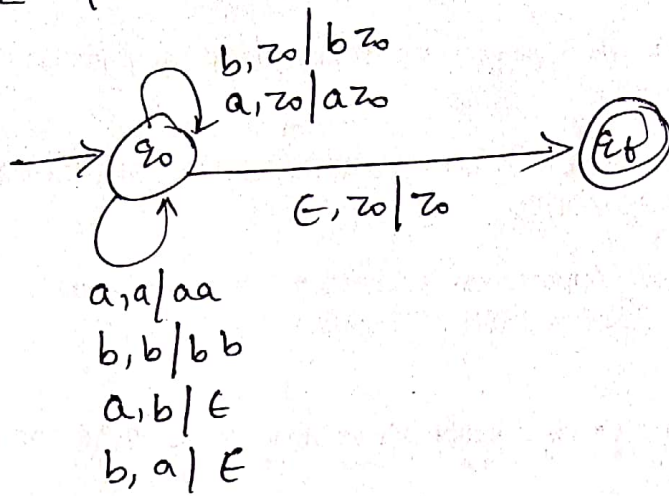 b, z0 | b z0
a, z0 | a z0
q0
qf
ϵ, z0 | z0
a, a | aa
b, b | b b
a, b | ϵ
b, a | ϵ